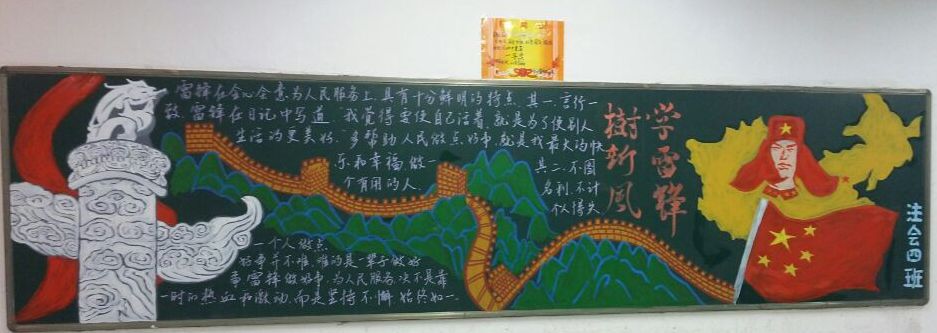 雷锋在全心全意为人民服务上,具有十分鲜明的特点。其一,言行一
致。雷锋在日记中写道"我觉得要使自己活着,就是为了使别人
生活的更美好。""多帮助人民做点好事,就是我最大的快
乐和幸福,做一
个有用的人。
其二,不图
名利,不计
个人得失
一个人做点
好事并不难,难的是一辈子做好
事,雷锋做好事,为人民服务,决不是靠
一时的热血和激动,而是坚持不懈,始终如一。
学雷鋒
樹新風
注会四班